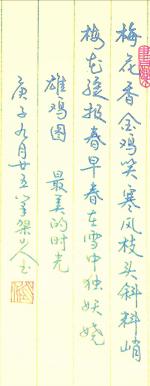 梅花香金鸡笑寒风枝头斜料峭
梅花绽报春早春在雪中独妖娆
雄鸡图 最美的时光
庚子九月廿五